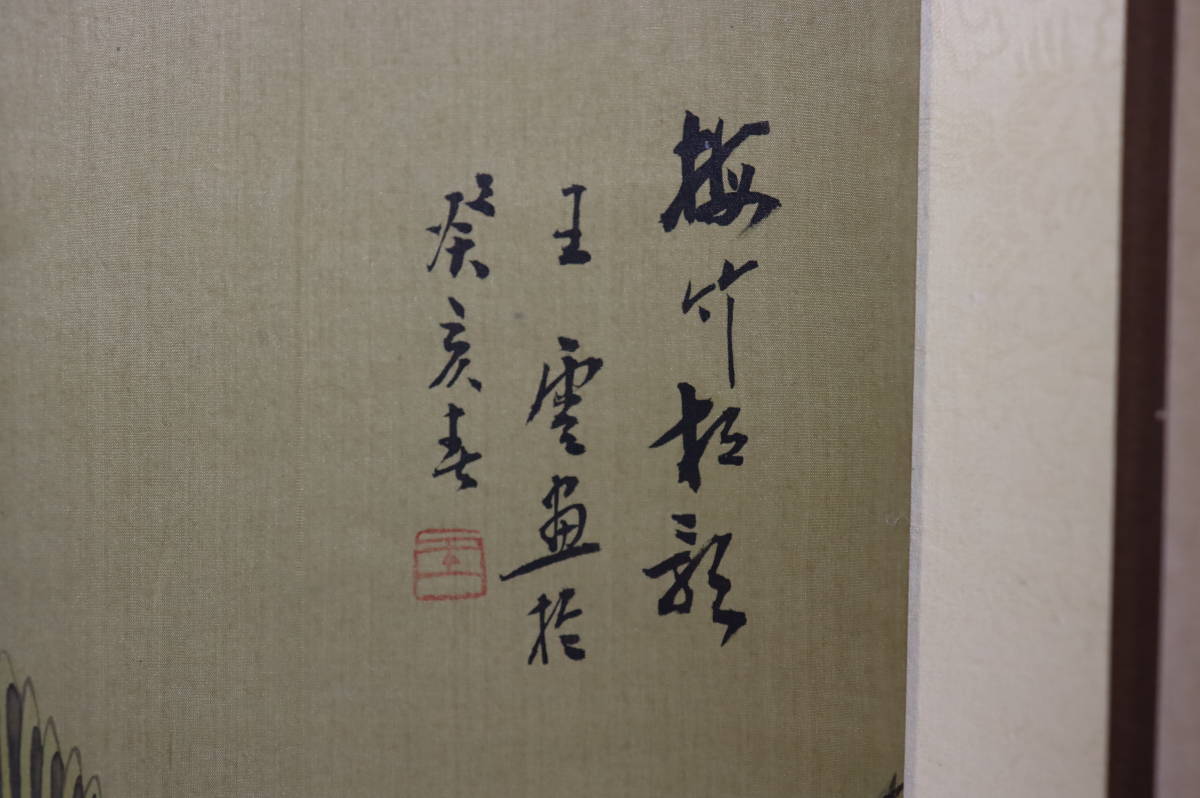 梅竹
王雲畫於
癸亥春